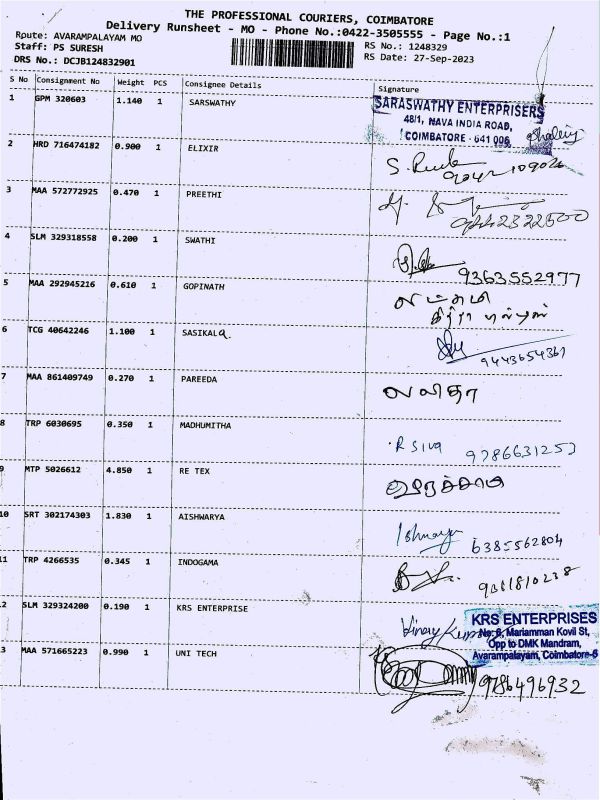 THE PROFESSIONAL COURIERS, COIMBATORE
Delivery Runsheet - MO - Phone No.:0422-3505555 - Page No.:1
Route: AVARAMPALAYAM MO
RS No.: 1248329
Staff: PS SURESH
RS Date: 27-Sep-2023
DRS No.: DCJB124832901
S No Consignment No Weight PCS Consignee Details Signature
1 GPM 320603 1.140 1 SARSWATHY
SARASWATHY ENTERPRISERS
48/1, NAVA INDIA ROAD,
COIMBATORE - 641 006
2 HRD 716474182 0.900 1 ELIXIR
3 MAA 572772925 0.470 1 PREETHI
4 SLM 329318558 0.200 1 SWATHI
9363552977
5 MAA 292945216 0.610 1 GOPINATH
6 TCG 40642246 1.100 1 SASIKALA
9443654361
7 MAA 861409749 0.270 1 PAREEDA
லலிதா
8 TRP 6030695 0.350 1 MADHUMITHA
R Siva 9786631253
9 MTP 5026612 4.850 1 RE TEX
10 SRT 302174303 1.830 1 AISHWARYA
6385562804
11 TRP 4266535 0.345 1 INDOGAMA
12 SLM 329324200 0.190 1 KRS ENTERPRISE
Vinay Kumar
KRS ENTERPRISES
No:6, Mariamman Kovil St,
Opp to DMK Mandram,
Avarampalayam, Coimbatore-6
13 MAA 571665223 0.990 1 UNI TECH
9786496932